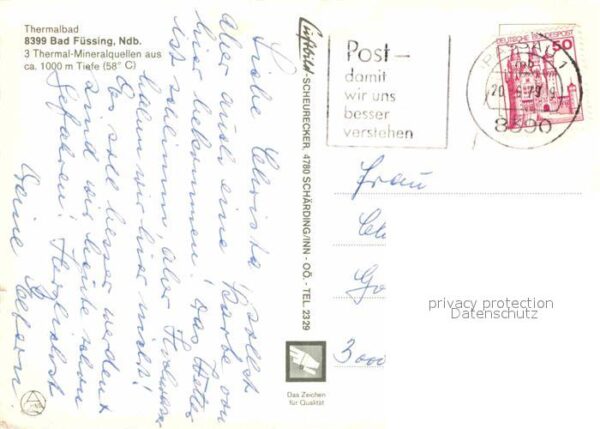 Thermalbad
8399 Bad Füssing, Ndb.
3 Thermal-Mineralquellen aus
ca. 1000 m Tiefe (58° C)
Liebe Christa, sollst
aber auch eine Karte von
hier bekommen! Das Wetter
ist schlimm, aber Hochwasser
haben wir hier nicht!
Es soll besser werden!
sind wir heute schon
gefahren! Herzlichst
Deine Eltern
Luftbild-SCHEURECKER, 4780 SCHÄRDING/INN - OÖ. - TEL. 2329
Das Zeichen
für Qualität
Post –
damit
wir uns
besser
verstehen
DEUTSCHE BUNDESPOST
50
8390
Frau
Go
3000
privacy protection
Datenschutz